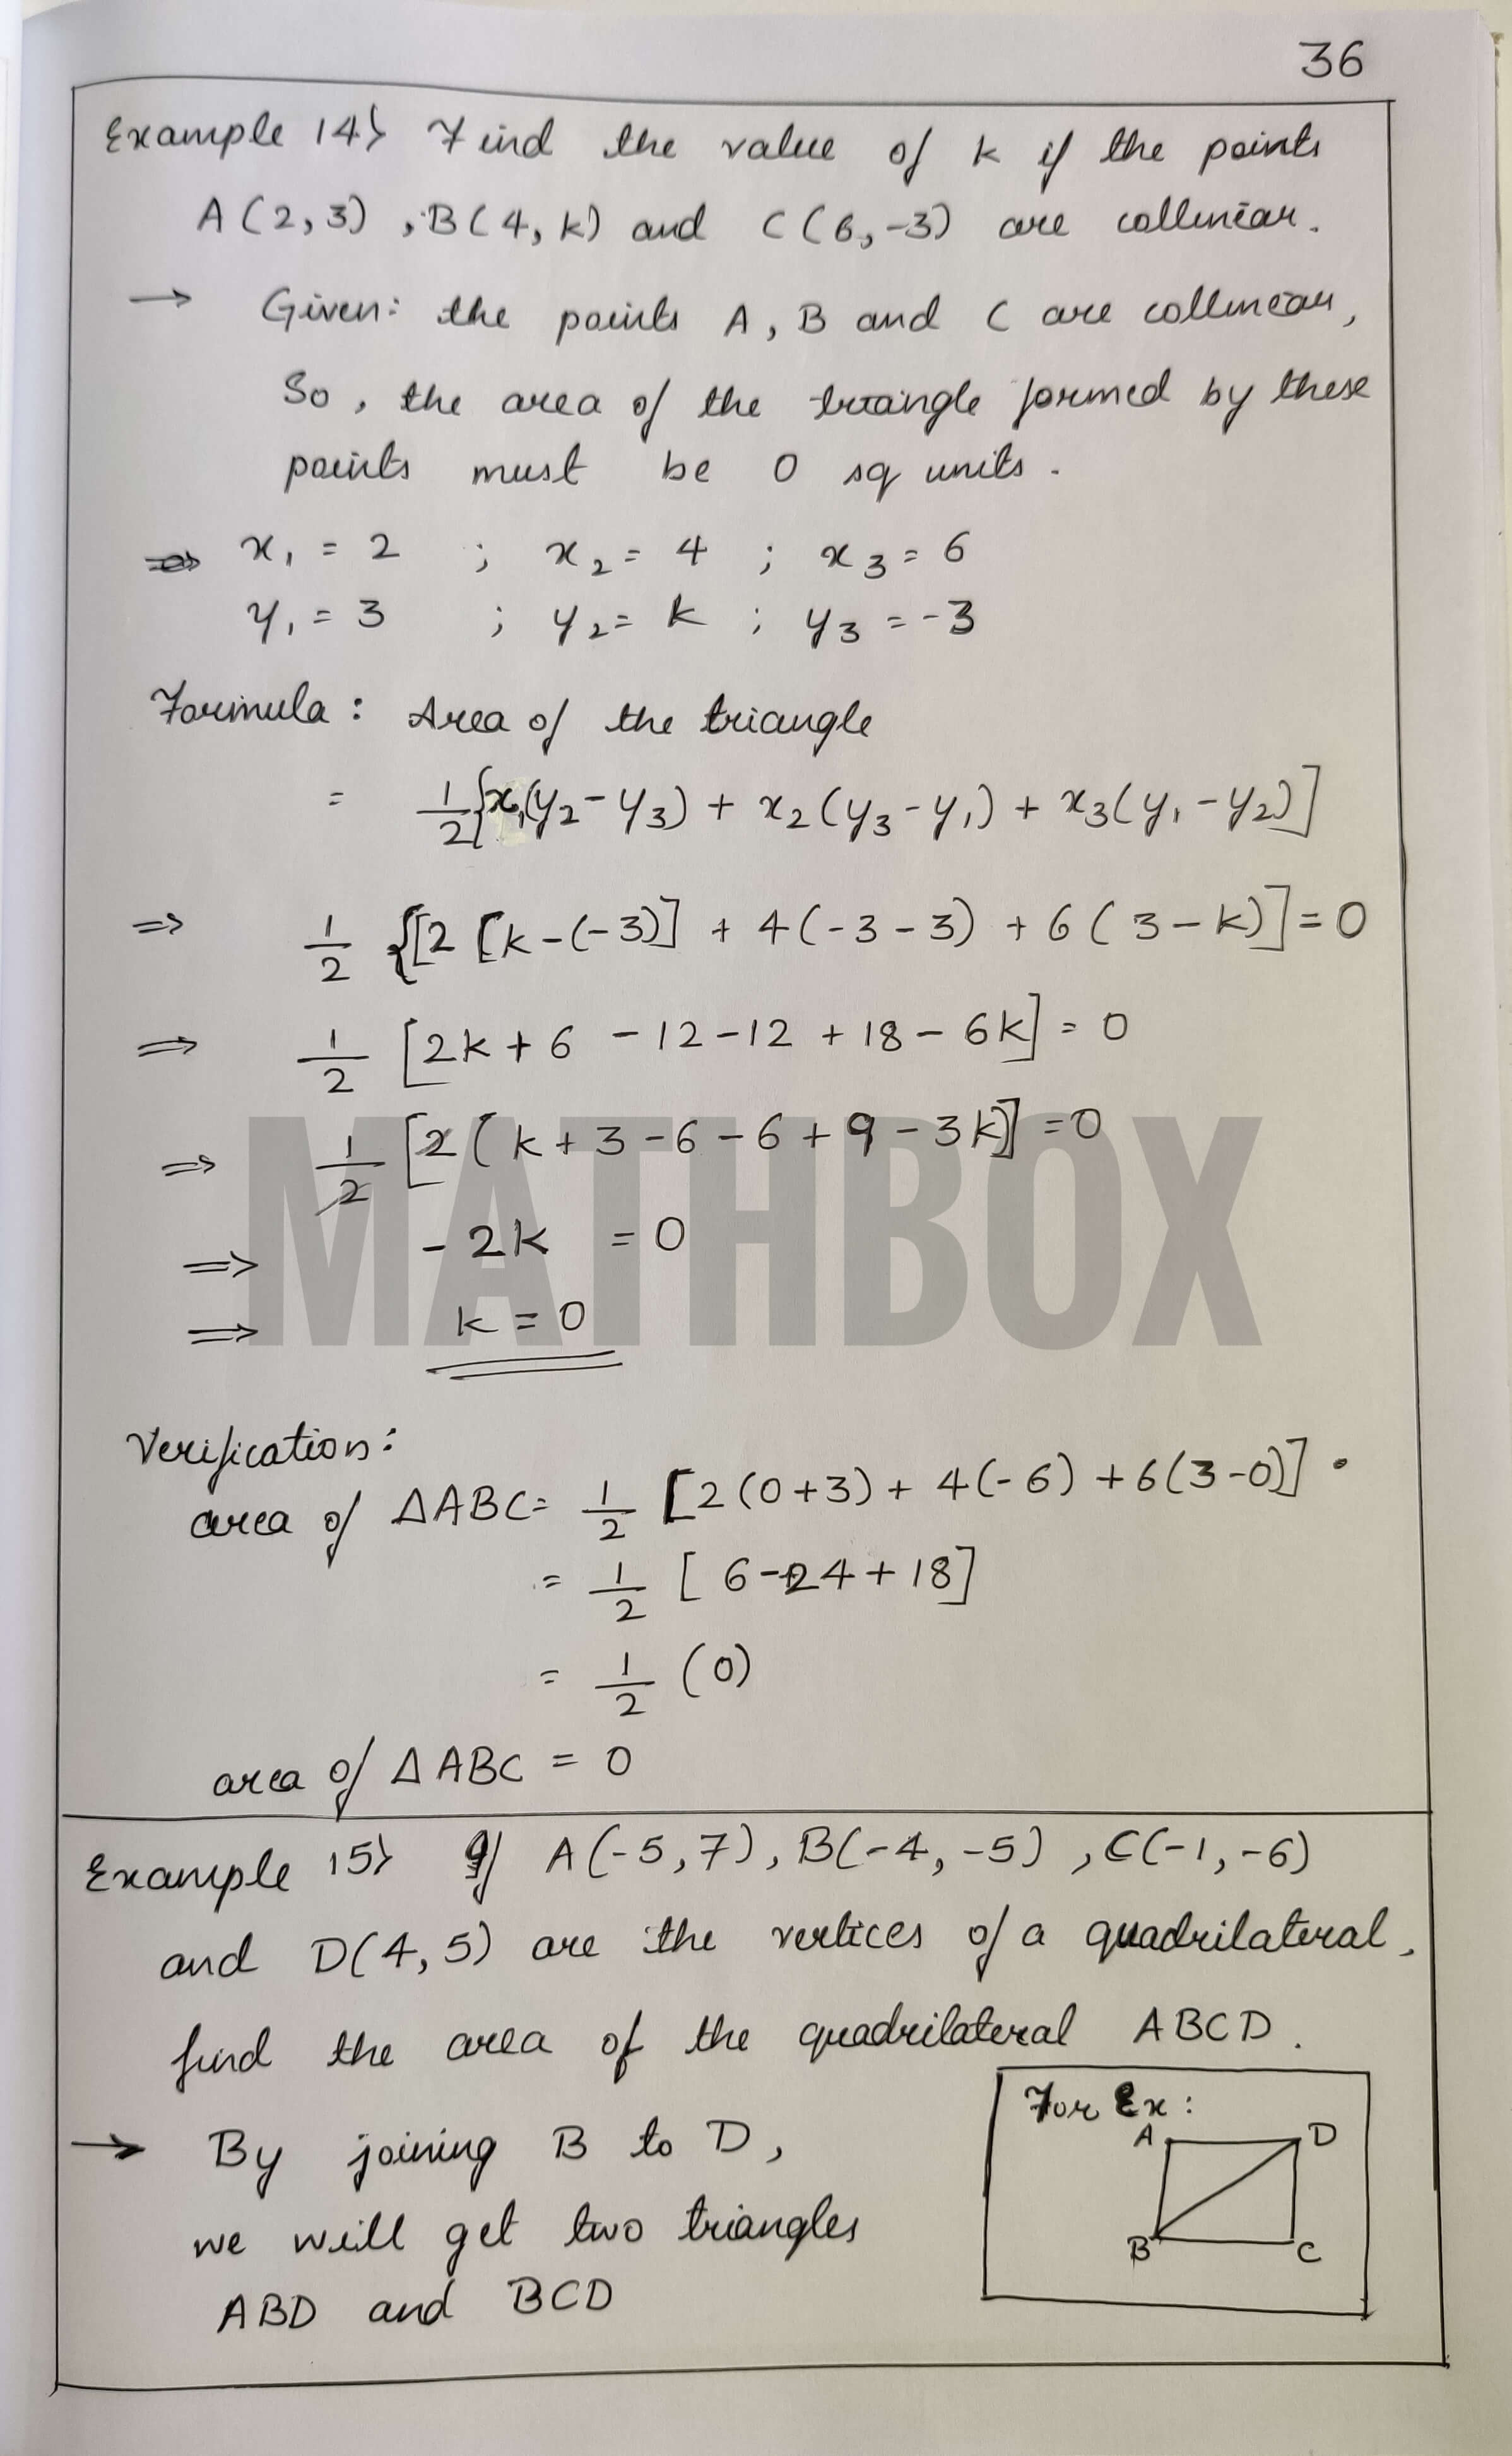 36
Example 14> Find the value of k if the points
A(2,3), B(4, k) and C(6,-3) are collinear.
→ Given: the points A, B and C are collinear,
So, the area of the triangle formed by these
points must be 0 sq units.
⇒ x₁ = 2 ; x₂ = 4 ; x₃ = 6
y₁ = 3 ; y₂ = k ; y₃ = -3
Formula: Area of the triangle
= 1/2 {x₁(y₂-y₃) + x₂(y₃-y₁) + x₃(y₁-y₂)]
⇒ 1/2 {[2 [k-(-3)] + 4(-3-3) + 6(3-k)] = 0
⇒ 1/2 [2k+6 -12-12 +18-6k] = 0
⇒ 1/2 [2(k+3-6-6+9-3k)] = 0
⇒ -2k = 0
⇒ k = 0
MATHBOX
Verification:
area of ΔABC = 1/2 [2(0+3) + 4(-6) + 6(3-0)].
= 1/2 [6-24+18]
= 1/2 (0)
area of ΔABC = 0
Example 15> If A(-5,7), B(-4,-5), C(-1,-6)
and D(4,5) are the vertices of a quadrilateral,
find the area of the quadrilateral ABCD.
→ By joining B to D,
we will get two triangles
ABD and BCD
For Ex:
A D
B C